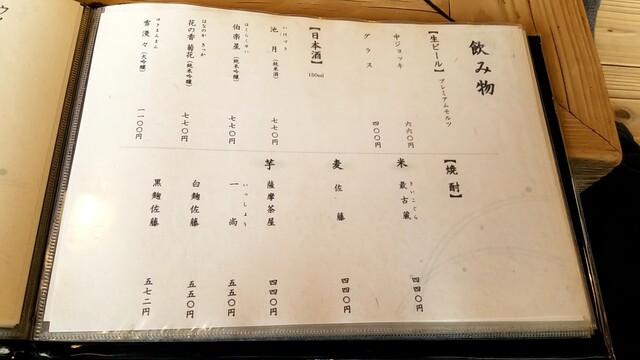 飲み物
【生ビール】 プレミアムモルツ
中ジョッキ 六六〇円
グラス 四〇〇円
【日本酒】 180ml
いけづき
池月(純米酒) 七七〇円
はくらくせい
伯楽星(純米吟醸) 七七〇円
はなのか きっか
花の香 菊花(純米吟醸) 七七〇円
ゆきまんまん
雪漫々(大吟醸) 一一〇〇円
【焼酎】
米 さいこぐら
最古蔵 四四〇円
麦 佐藤 四四〇円
芋 薩摩茶屋 四四〇円
いっしょう
一尚 五五〇円
白麹佐藤 五五〇円
黒麹佐藤 五七二円